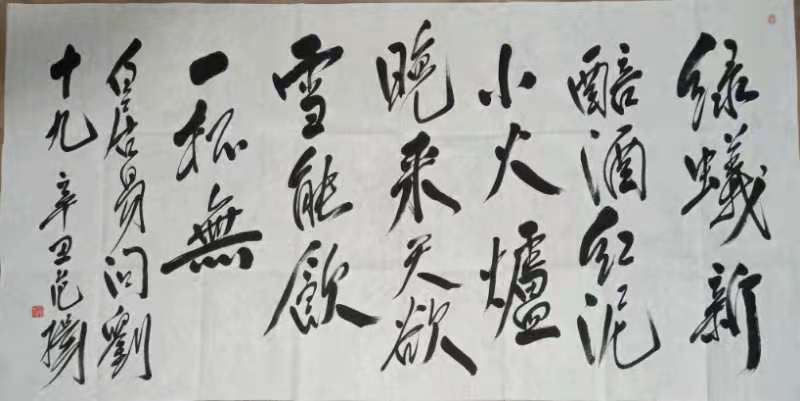 绿蟻新
醅酒红泥
小火爐
晚来天欲
雪能飲
一杯無
白居易问劉
十九 辛丑